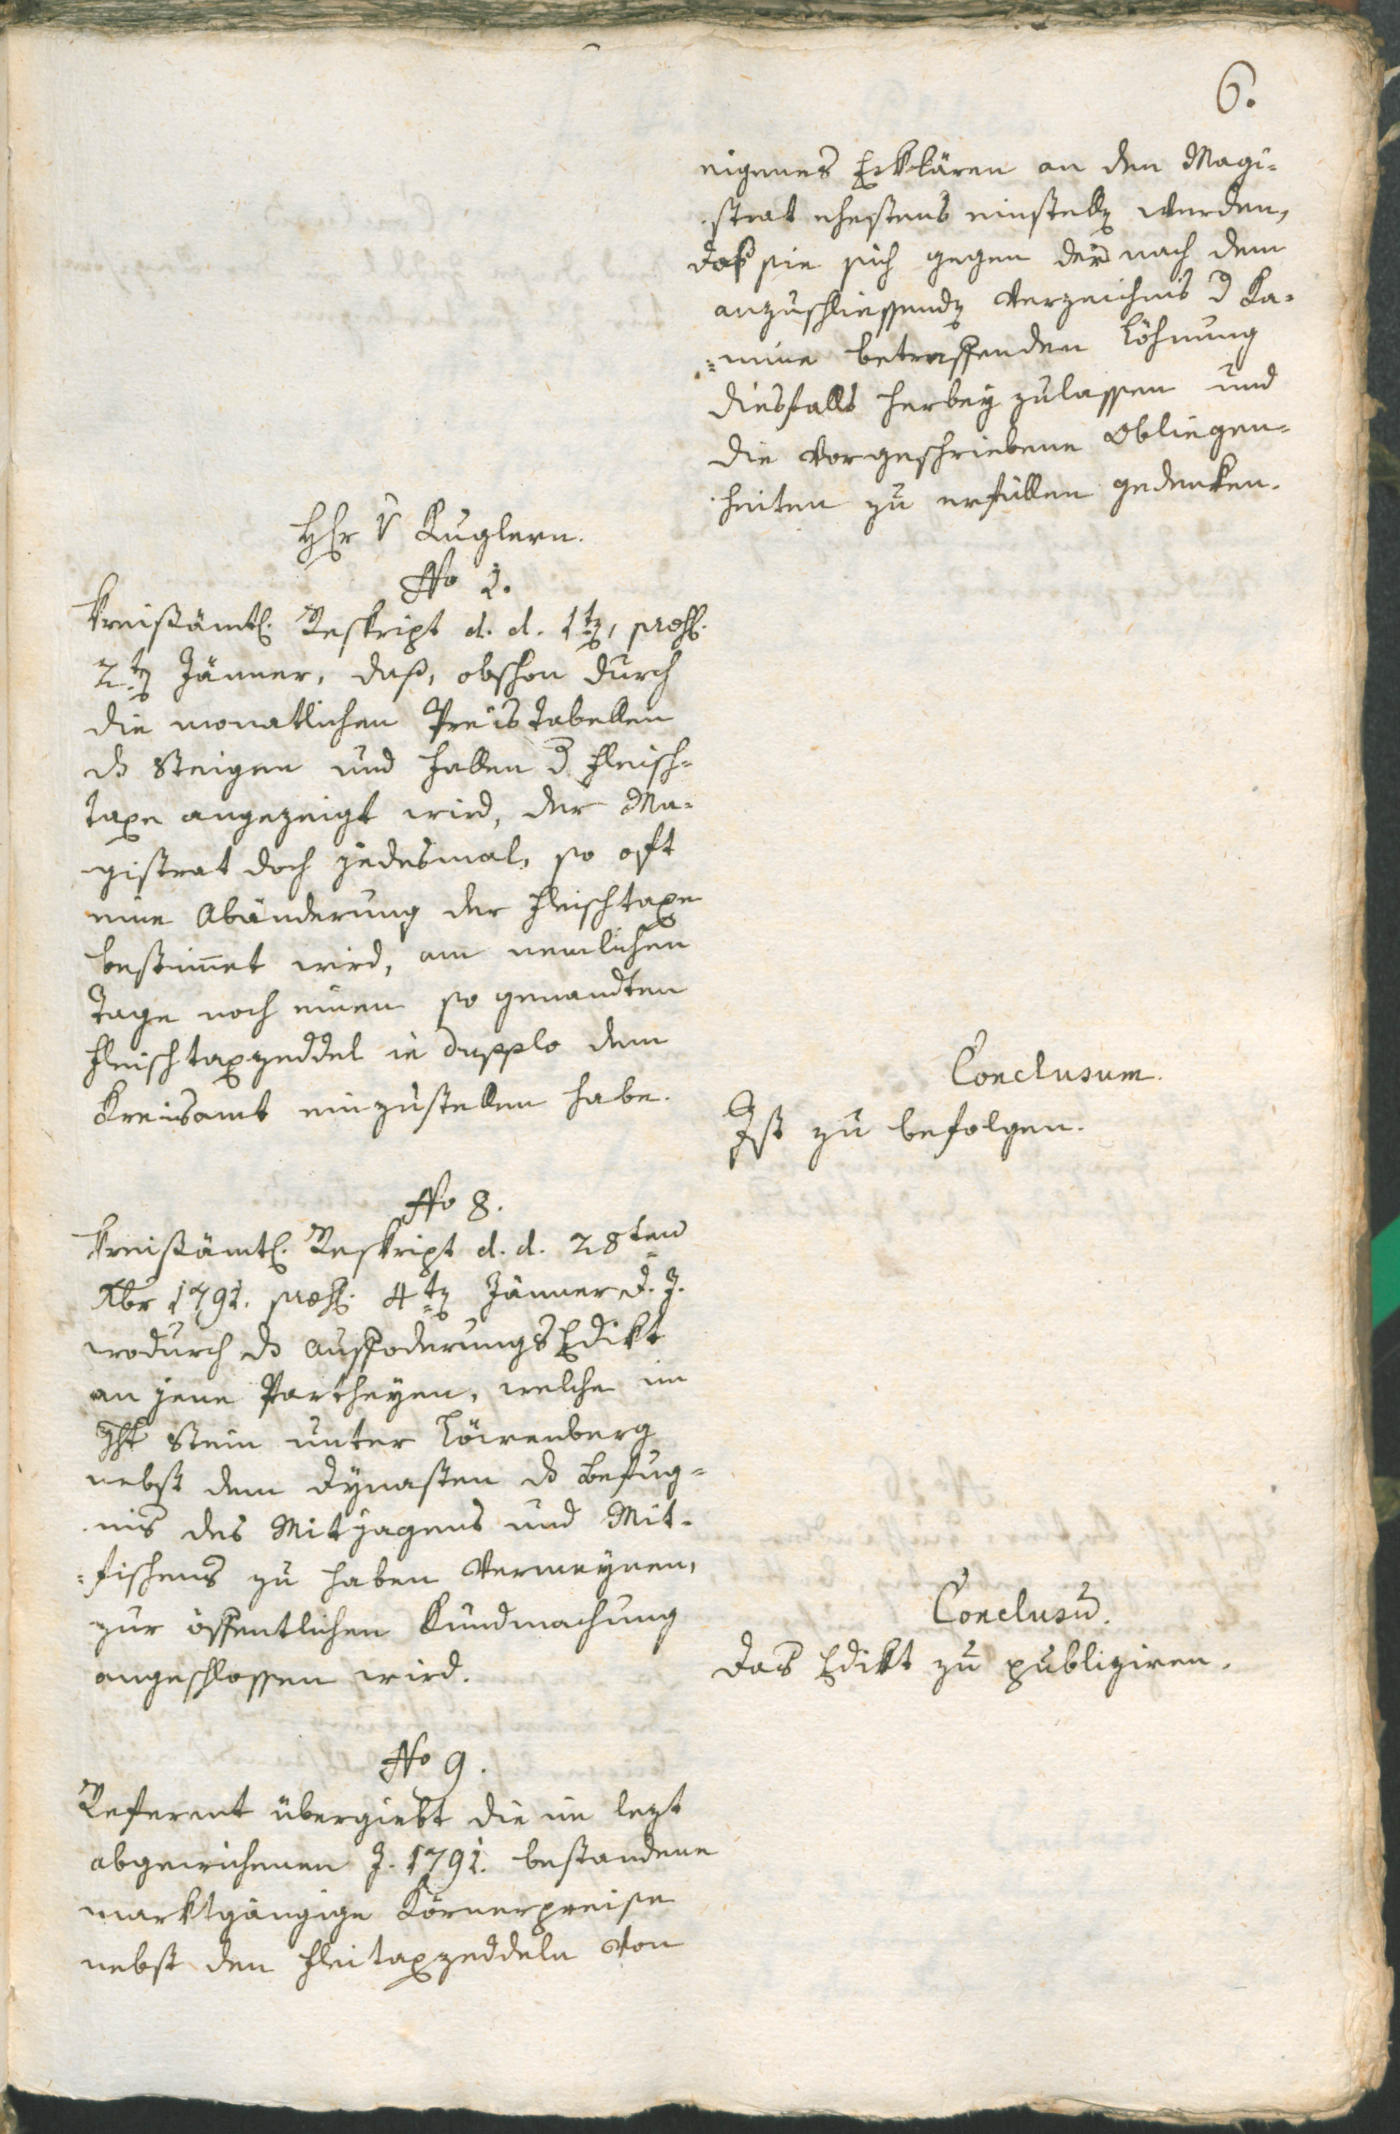 6.
eigenes Erklären an den Magi-
strat ehestens einstellen werden,
daß sie sich gegen der nach dem
anzuschliessenden Verzeichnis d Ka-
=mine betreffenden Löhnung
diesfalls herbey zulassen und
die vorgeschriebene Obliegen-
heiten zu erfüllen gedenken.
Hr v Kuglern.
No 1.
Kreißämtl. Reskript d. d. 1ten, praes.
2ten Jänner, daß, obschon durch
die monatlichen Preistabellen
ds Steigen und Fallen d Fleisch-
taxe angezeigt wird, der Ma-
gistrat doch jedesmal, so oft
eine Abänderung der Fleischtaxe
bestimmet wird, am nemlichen
Tage noch einen so genandten
Fleischtaxzeddel in dupplo dem
Kreisamt einzustellen habe.
Conclusum.
Ist zu befolgen.
No 8.
Kreißämtl. Reskript d. d. 28ten
Xbr 1791. praes. 4ten Jänner d. J.
wodurch ds Auffoderungs Edikt
an jene Partheyen, welche im
Ght Stein unter Löwenberg
nebst dem Dynasten ds Befug-
nis des Mitjagens und Mit-
=fischens zu haben vermeynen,
zur öffentlichen Kundmachung
angeschlossen wird.
Conclusū.
Das Edikt zu publiziren.
No 9.
Referent übergiebt die im lezt
abgewichenen J. 1791. bestandene
marktgängige Körnerpreise
nebst den Fleitaxzeddeln von